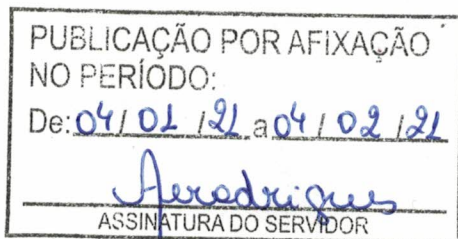 PUBLICAÇÃO POR AFIXAÇÃO
NO PERÍODO:
De: 04/01/21 a 04/02/21
Aerodrigues
ASSINATURA DO SERVIDOR